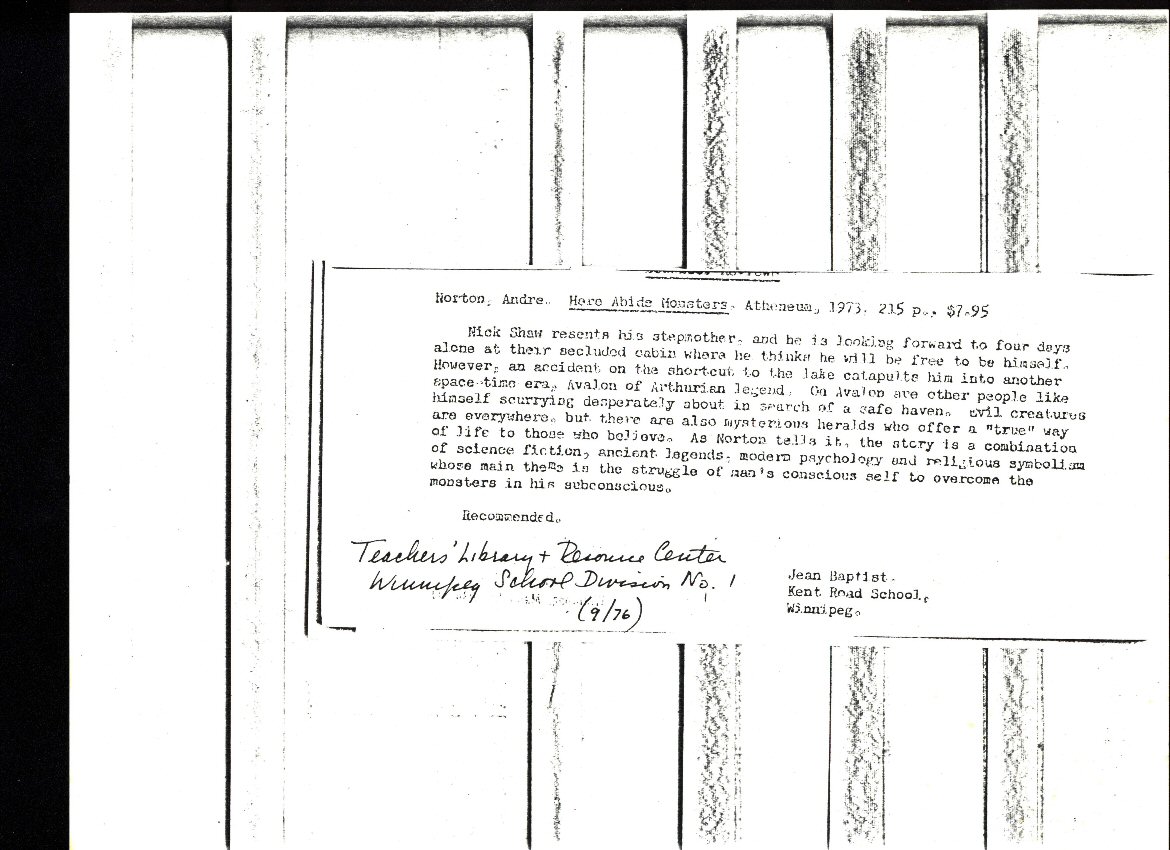 Norton, Andre. Here Abide Monsters. Atheneum, 1973. 215 p., $7.95
Nick Shaw resents his stepmother, and he is looking forward to four days
alone at their secluded cabin where he thinks he will be free to be himself.
However, an accident on the shortcut to the lake catapults him into another
space-time era, Avalon of Arthurian legend. On Avalon are other people like
himself scurrying desperately about in search of a safe haven. Evil creatures
are everywhere, but there are also mysterious heralds who offer a "true" way
of life to those who believe. As Norton tells it, the story is a combination
of science fiction, ancient legends, modern psychology and religious symbolism
whose main theme is the struggle of man's conscious self to overcome the
monsters in his subconscious.
Recommended.
Teachers' Library + Resource Center
Winnipeg School Division No. 1
(9/76)
Jean Baptist.
Kent Road School,
Winnipeg.